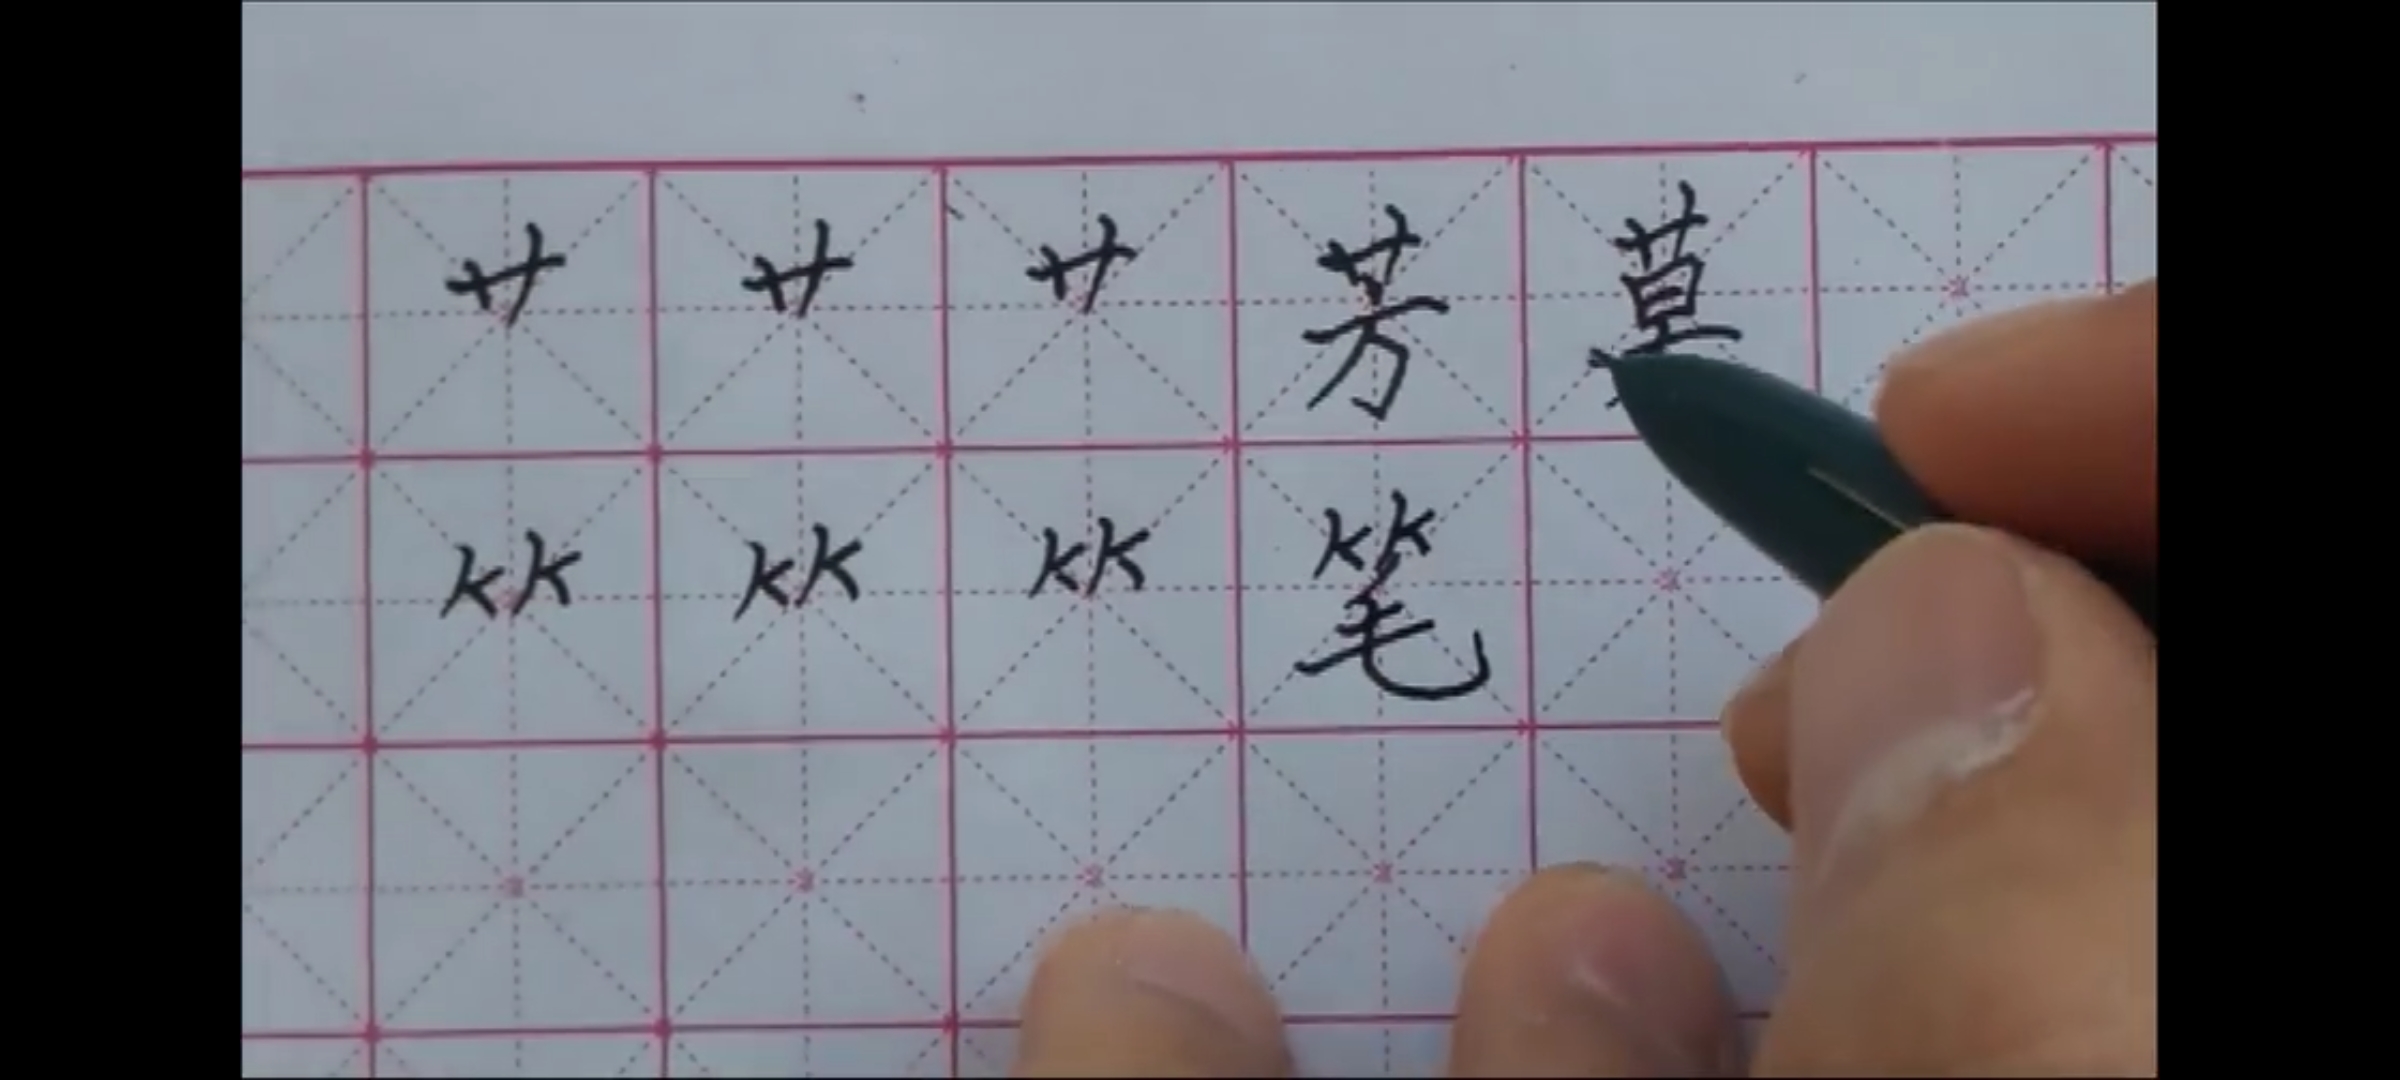 艹 艹 艹 芳
⺮ ⺮ ⺮ 笔